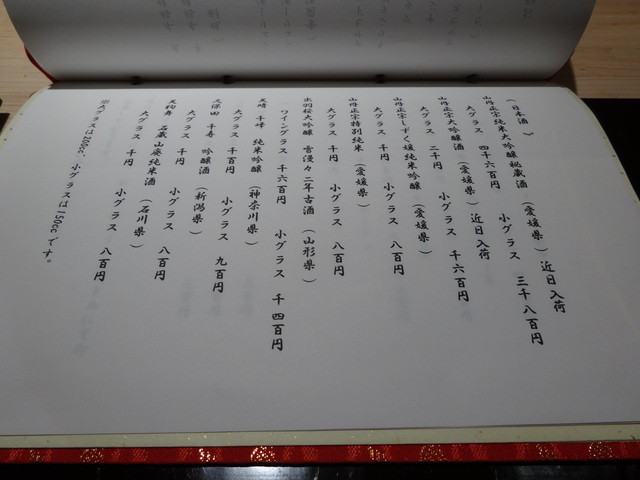 （日本酒　）
山丹正宗純米大吟醸秘蔵酒　（愛媛県）近日入荷
大グラス　四千六百円　　小グラス　三千八百円
山丹正宗大吟醸酒　（愛媛県）近日入荷
大グラス　二千円　　小グラス　千六百円
山丹正宗しずく媛純米吟醸　（愛媛県）
大グラス　千円　　小グラス　八百円
山丹正宗特別純米　（愛媛県）
大グラス　千円　　小グラス　八百円
出羽桜大吟醸　雪漫々二年古酒　（山形県　）
ワイングラス　千六百円　　小グラス　千四百円
天晴　千峰　純米吟醸　（神奈川県）
大グラス　千百円　　小グラス　九百円
久保田　千寿　吟醸酒　（新潟県）
大グラス　千円　　小グラス　八百円
天狗舞　石蔵　山廃純米酒　（石川県　）
大グラス　千円　　小グラス　八百円
※大グラスは200cc、小グラスは150ccです。